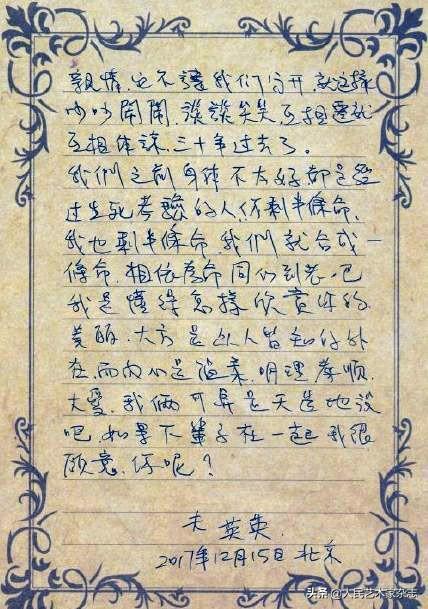 親情,也不讓我们分开,就這樣
吵吵鬧鬧,談談笑笑,互相遷就
互相体諒,三十年过去了。
我們之前身体不太好,都是經
过生死考驗的人,你剩半條命,
我也剩半條命,我們就合成一
條命,相依為命同行到老吧
我是懂得怎樣欣賞你的
美麗,大方是众人皆知的外
在,而内心是温柔,明理孝順,
大愛,我倆可算是天造地設
吧,如果下輩子在一起我很
願意,你呢?
夫 英英
2017年12月15日 北京
头条@人民艺术家杂志